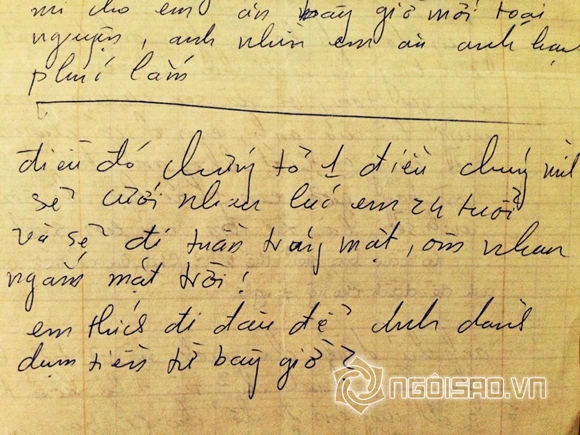 mì cho em ăn bây giờ mới toại
nguyện, anh nhìn em ăn anh hạnh
phúc lắm
điều đó chứng tỏ 1 điều chúng mình
sẽ cưới nhau lúc em 24 tuổi
và sẽ đi tuần trăng mật, ôm nhau
ngắm mặt trời!
em thích đi đâu để anh dành
dụm tiền từ bây giờ?
NGÔISAO.VN